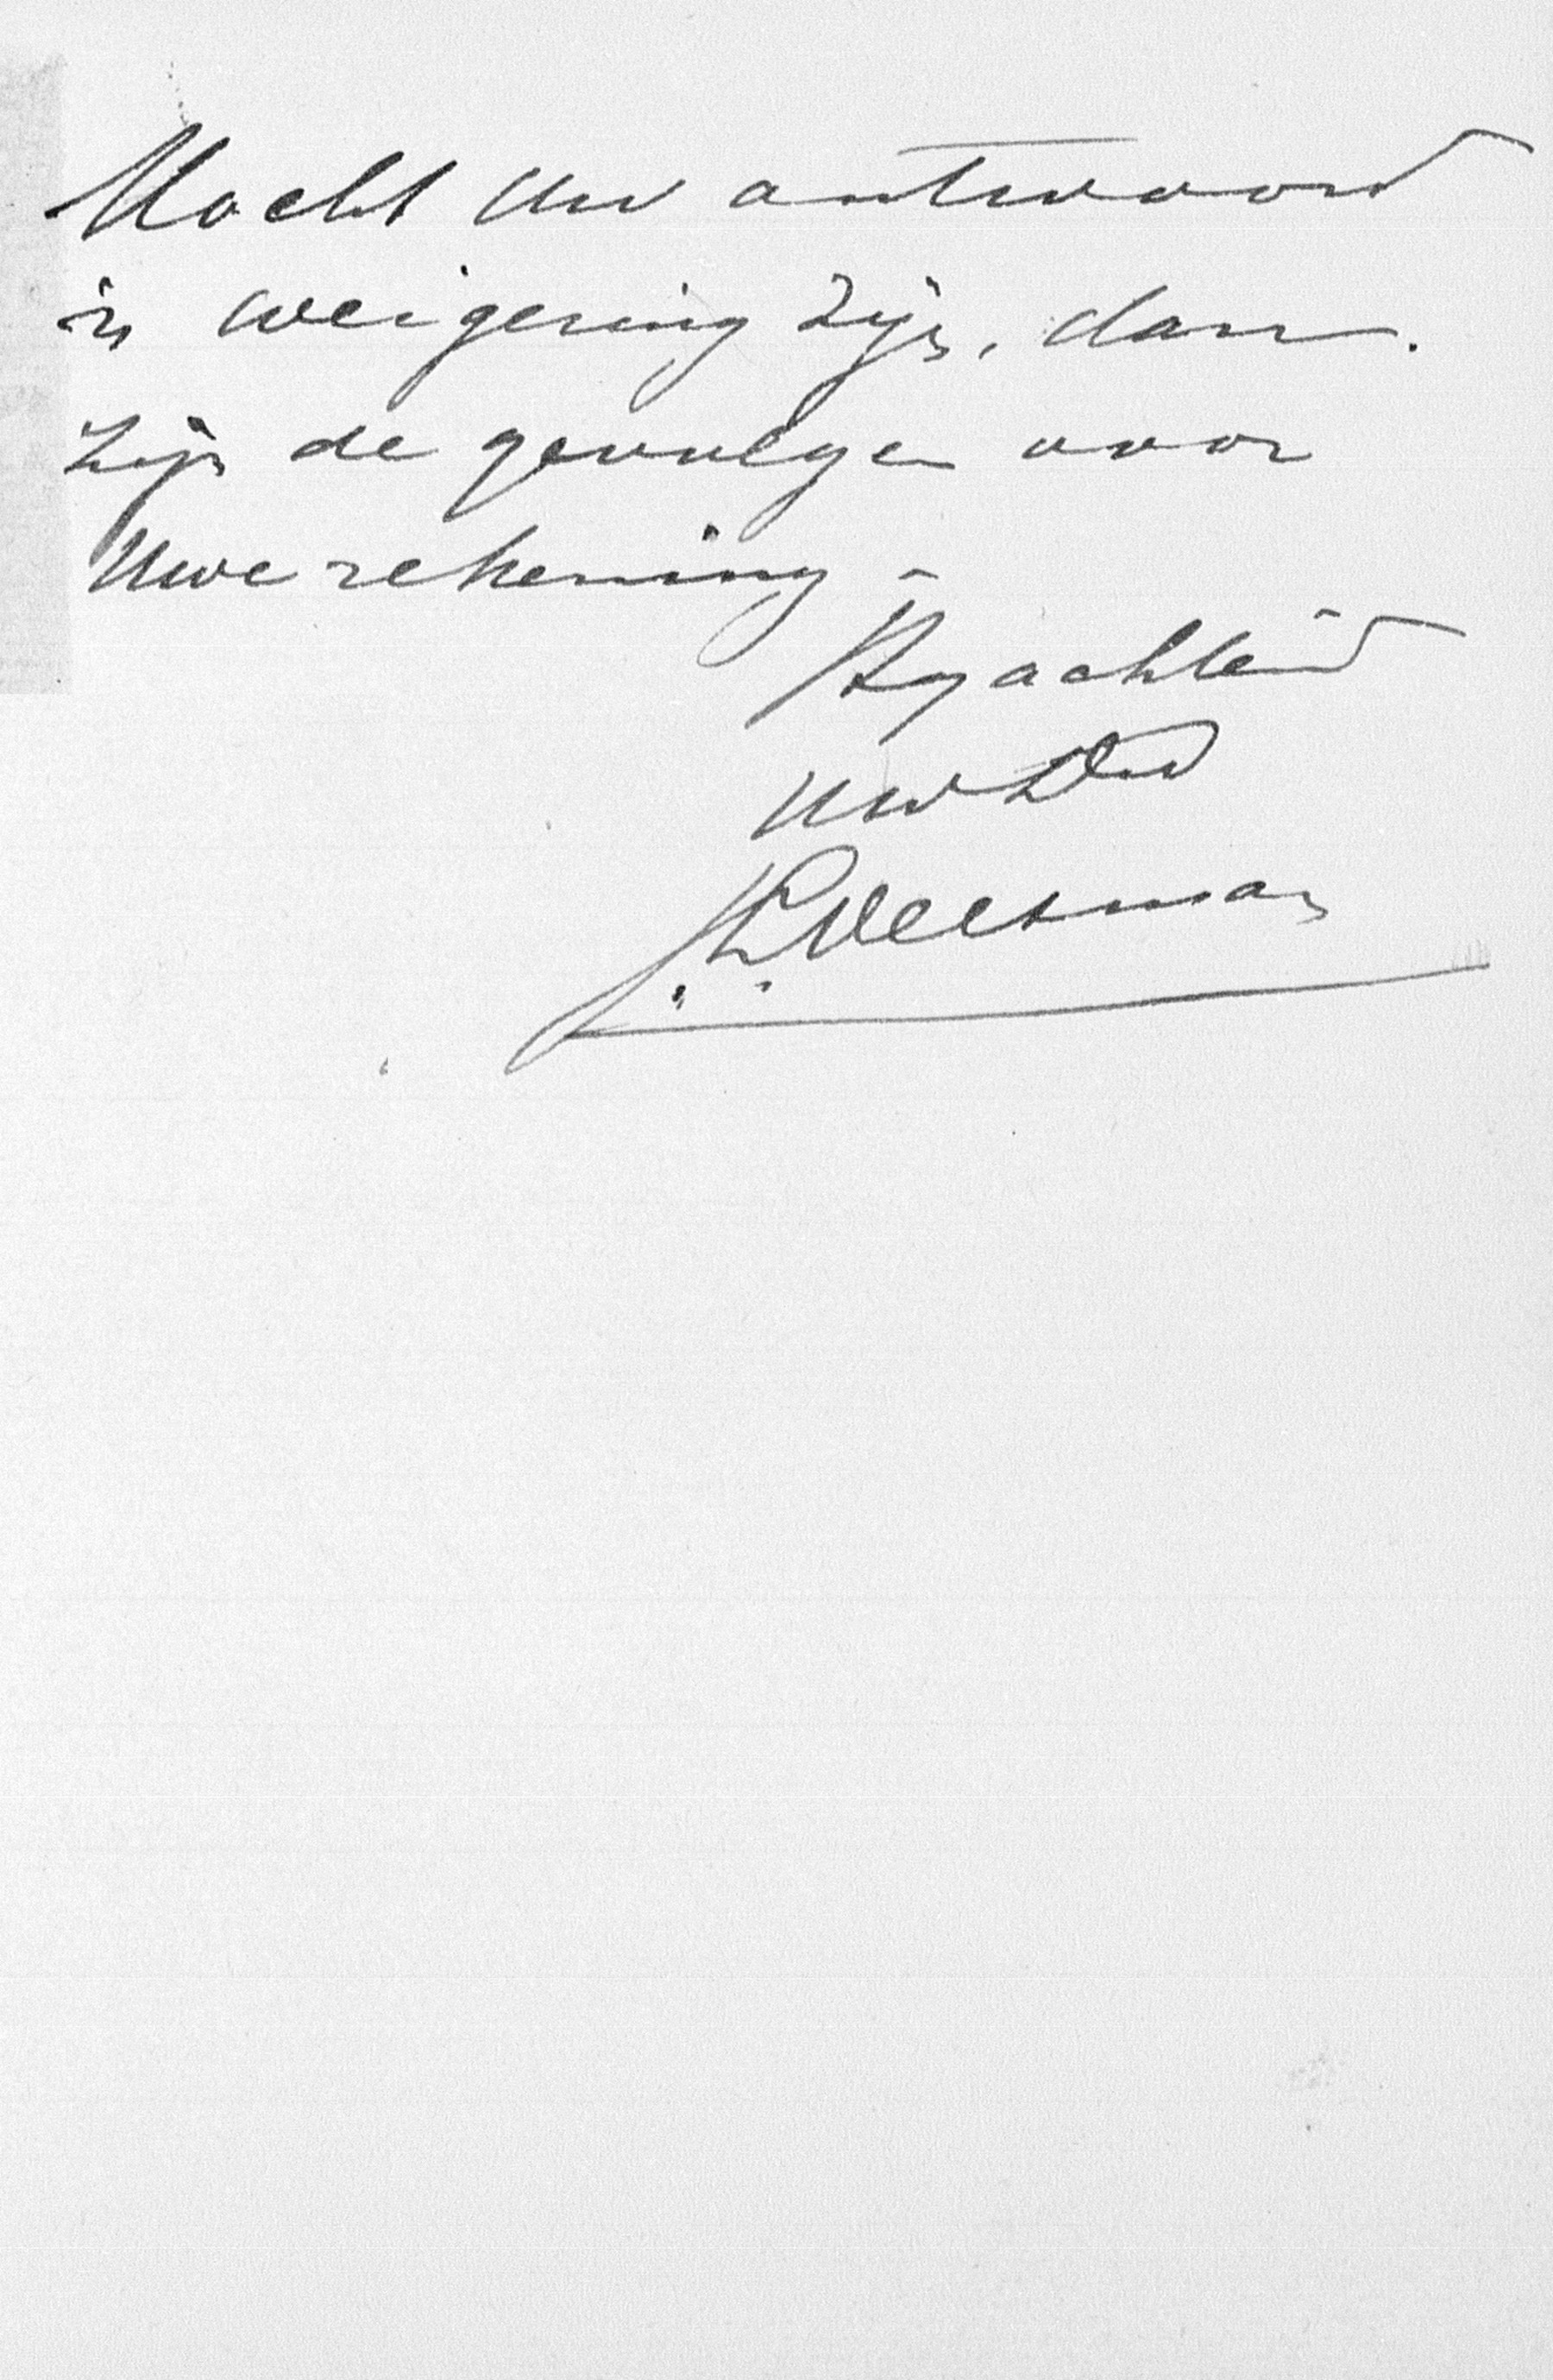 Mocht Uw antwoord
in weigering zijn, dan.
zijn de gevolgen voor
Uwe rekening -
Hoogachtend
Uw Dw